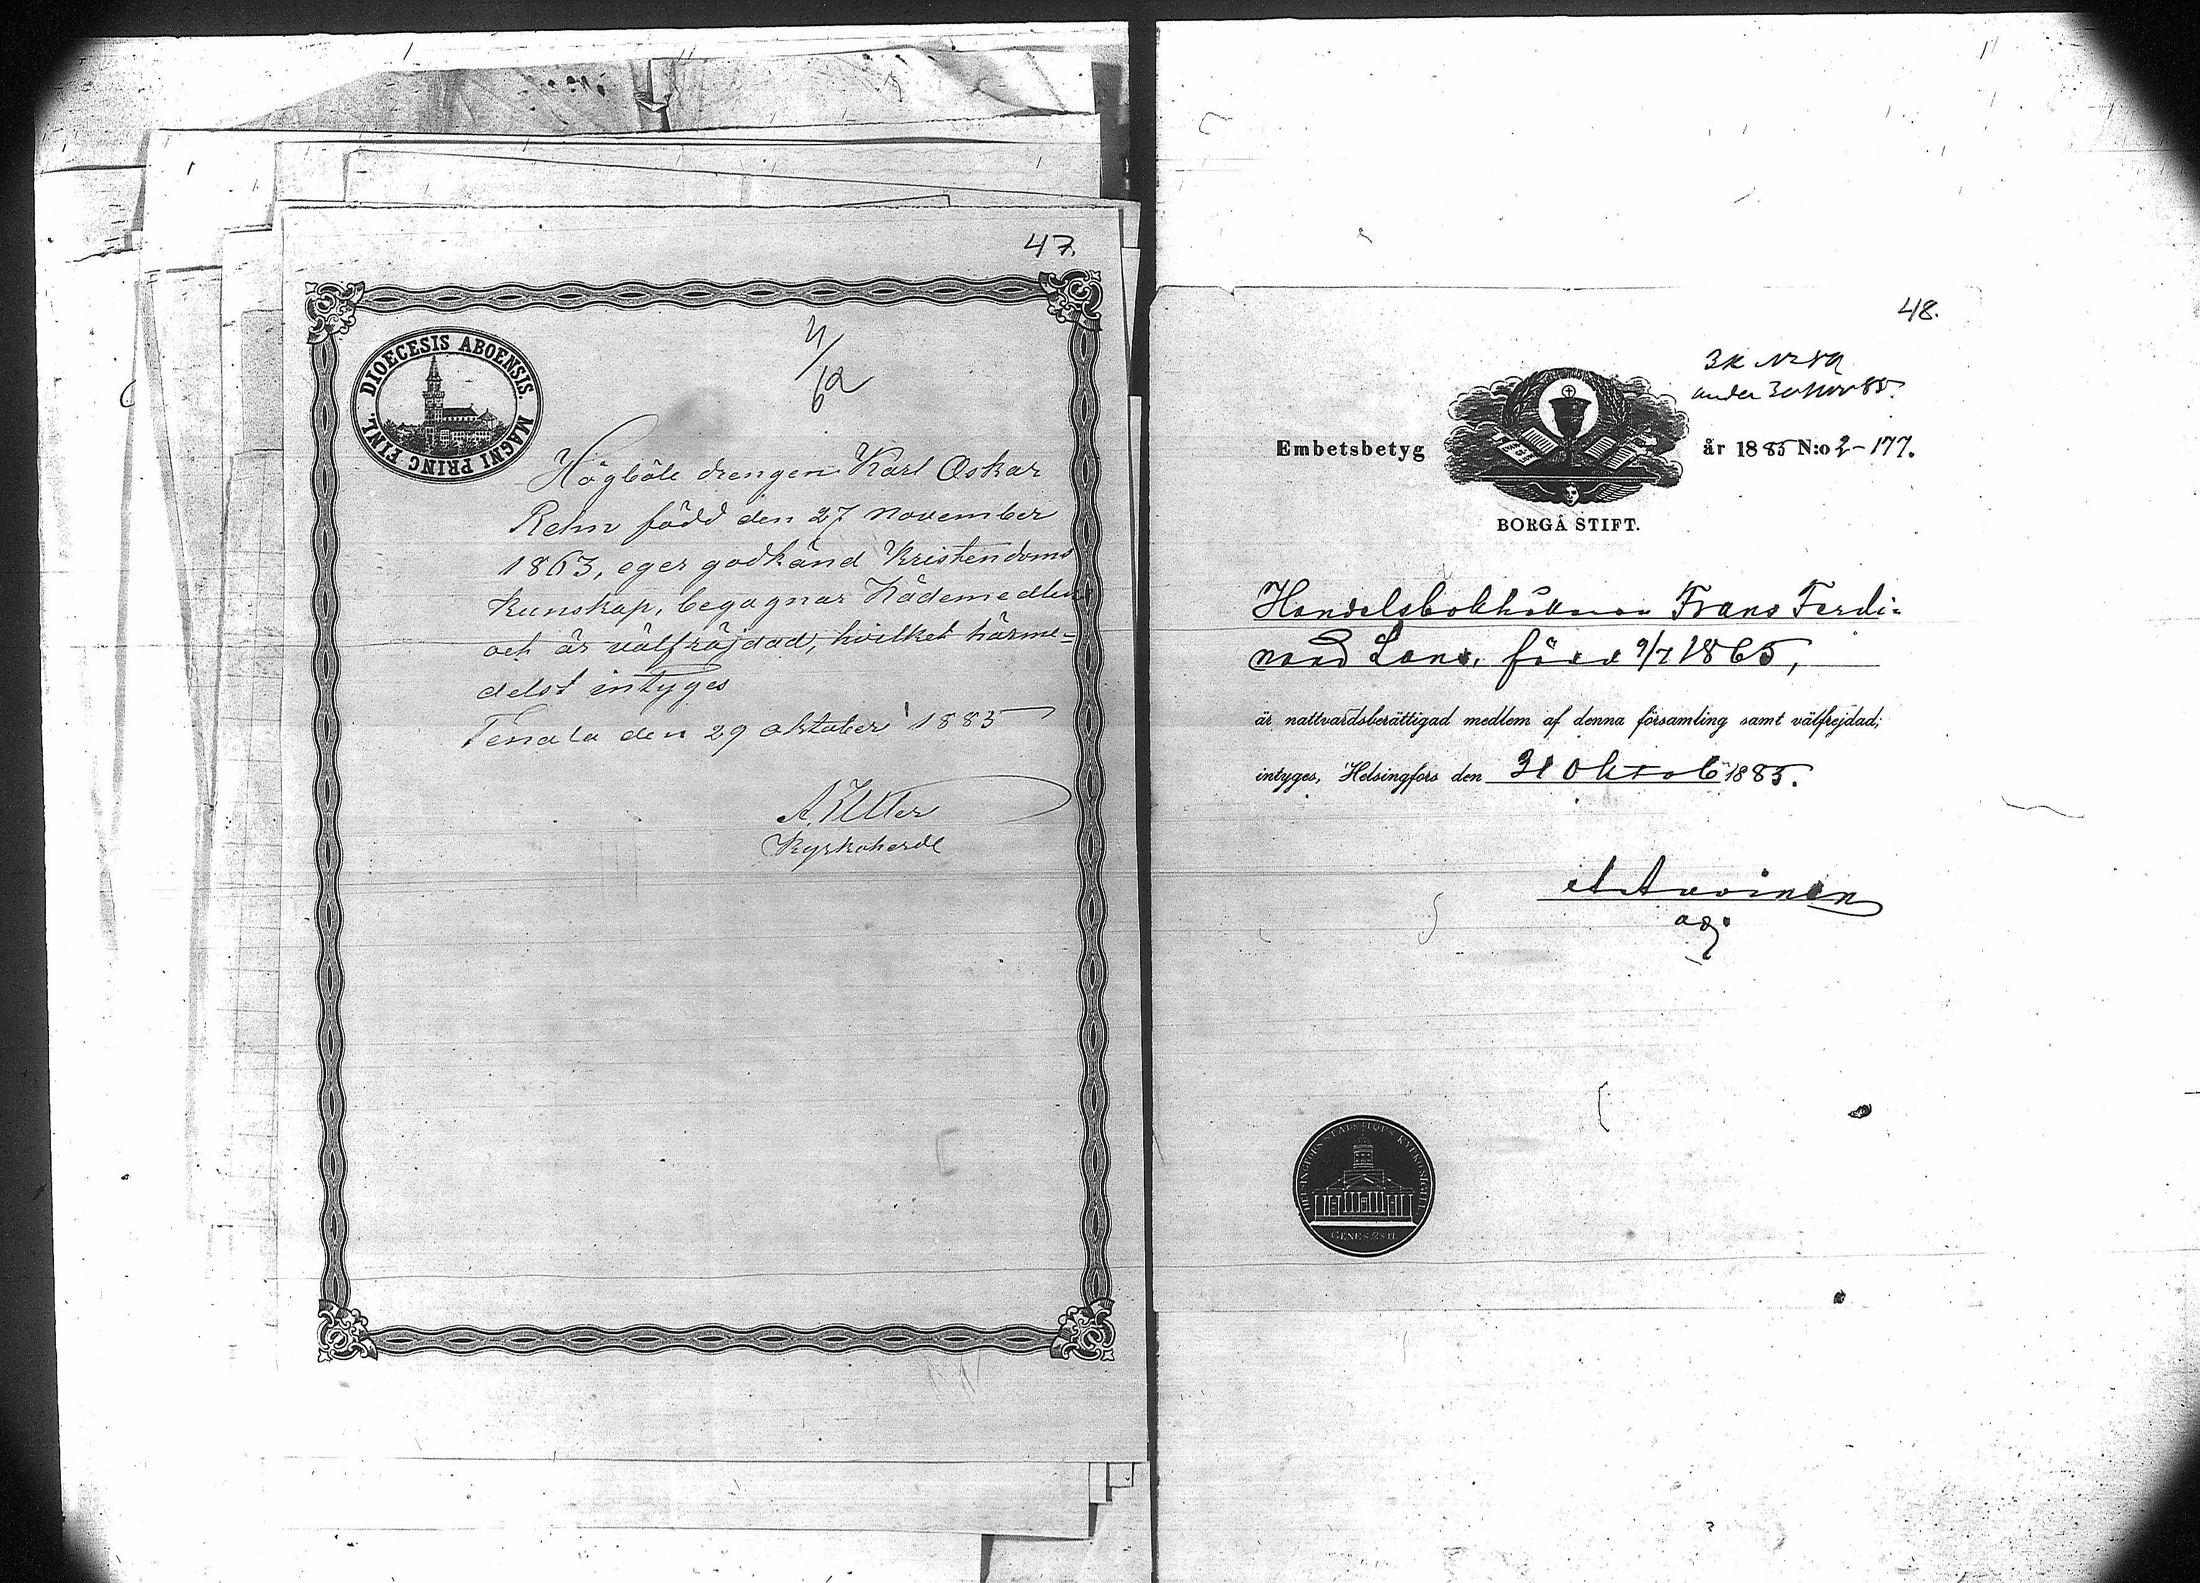 47.
DIOECESIS ABOENSIS. MAGNI PRINC FINL.
Högböle drengen Karl Oskar
Rehn född den 27 november
1863, eger godkänd Kristendoms
kunskap, begagnar Nådemedlen
och är välfräjdad, hvilket härme=
delst intyges
Tenala den 29 oktober 1885
Kyrkoherde
48.
under 30 Nov 85.
Embetsbetyg
år 1885 N:o 2-177.
BORGÅ STIFT.
Handelsbokhållaren Frans Ferdi=
nand född 9/7 1865,
är nattvardsberättigad medlem af denna församling samt välfrejdad;
intyges, Helsingfors den 31 Oktob 1885.
adj.
HELSINGFORS STADS KYRKO SIGILL.
GENES. 28.17.